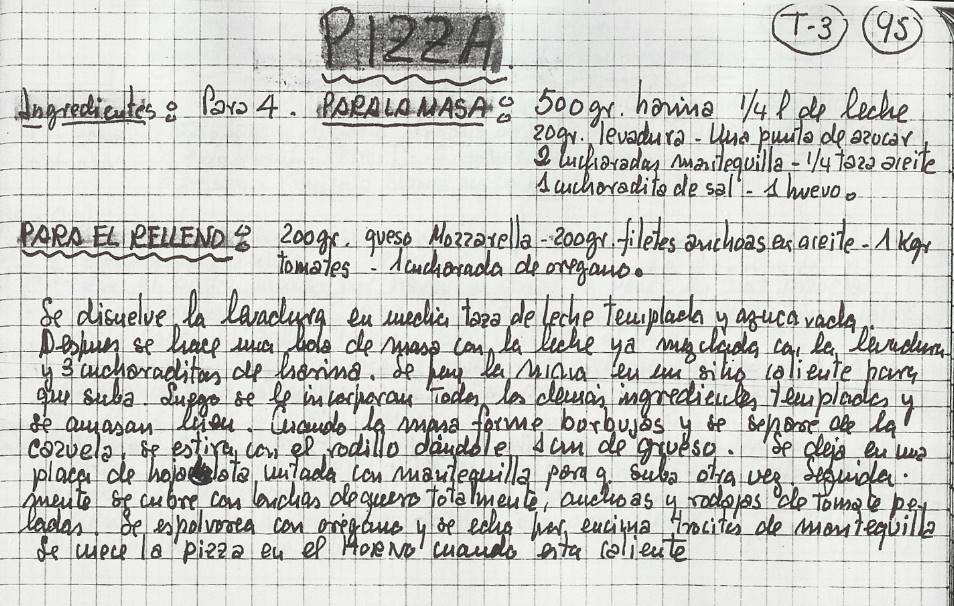 PIZZA.
T-3 95
Ingredientes: Para 4. PARA LA MASA: 500gr. harina 1/4 l de leche
20gr. levadura - Una punta de azucar,
2 cucharadas mantequilla - 1/4 taza aceite
1 cucharadita de sal - 1 huevo.
PARA EL RELLENO: 200gr. queso Mozzarella - 200gr. filetes anchoas en aceite - 1 Kgr
tomates - 1 cucharada de oregano.
Se disuelve la levadura en media taza de leche templada y azucarada.
Despues se hace una bola de masa con la leche ya mezclada con la levadura
y 3 cucharaditas de harina. Se pone la misma en un sitio caliente para
que suba. Luego se le incorporan todos los demás ingredientes templados y
se amasan bien. Cuando la masa forme borbujas y se separe de la
cazuela, se estira con el rodillo dándole 1 cm de grueso. Se deja en una
placa de hojalata untada con mantequilla para q. suba otra vez. Seguida-
mente se cubre con lonchas de queso totalmente, anchoas y rodajas de tomate pe-
ladas. Se espolvorea con orégano y se echa por encima trocitos de mantequilla
Se mece la pizza en el HORNO cuando esta caliente